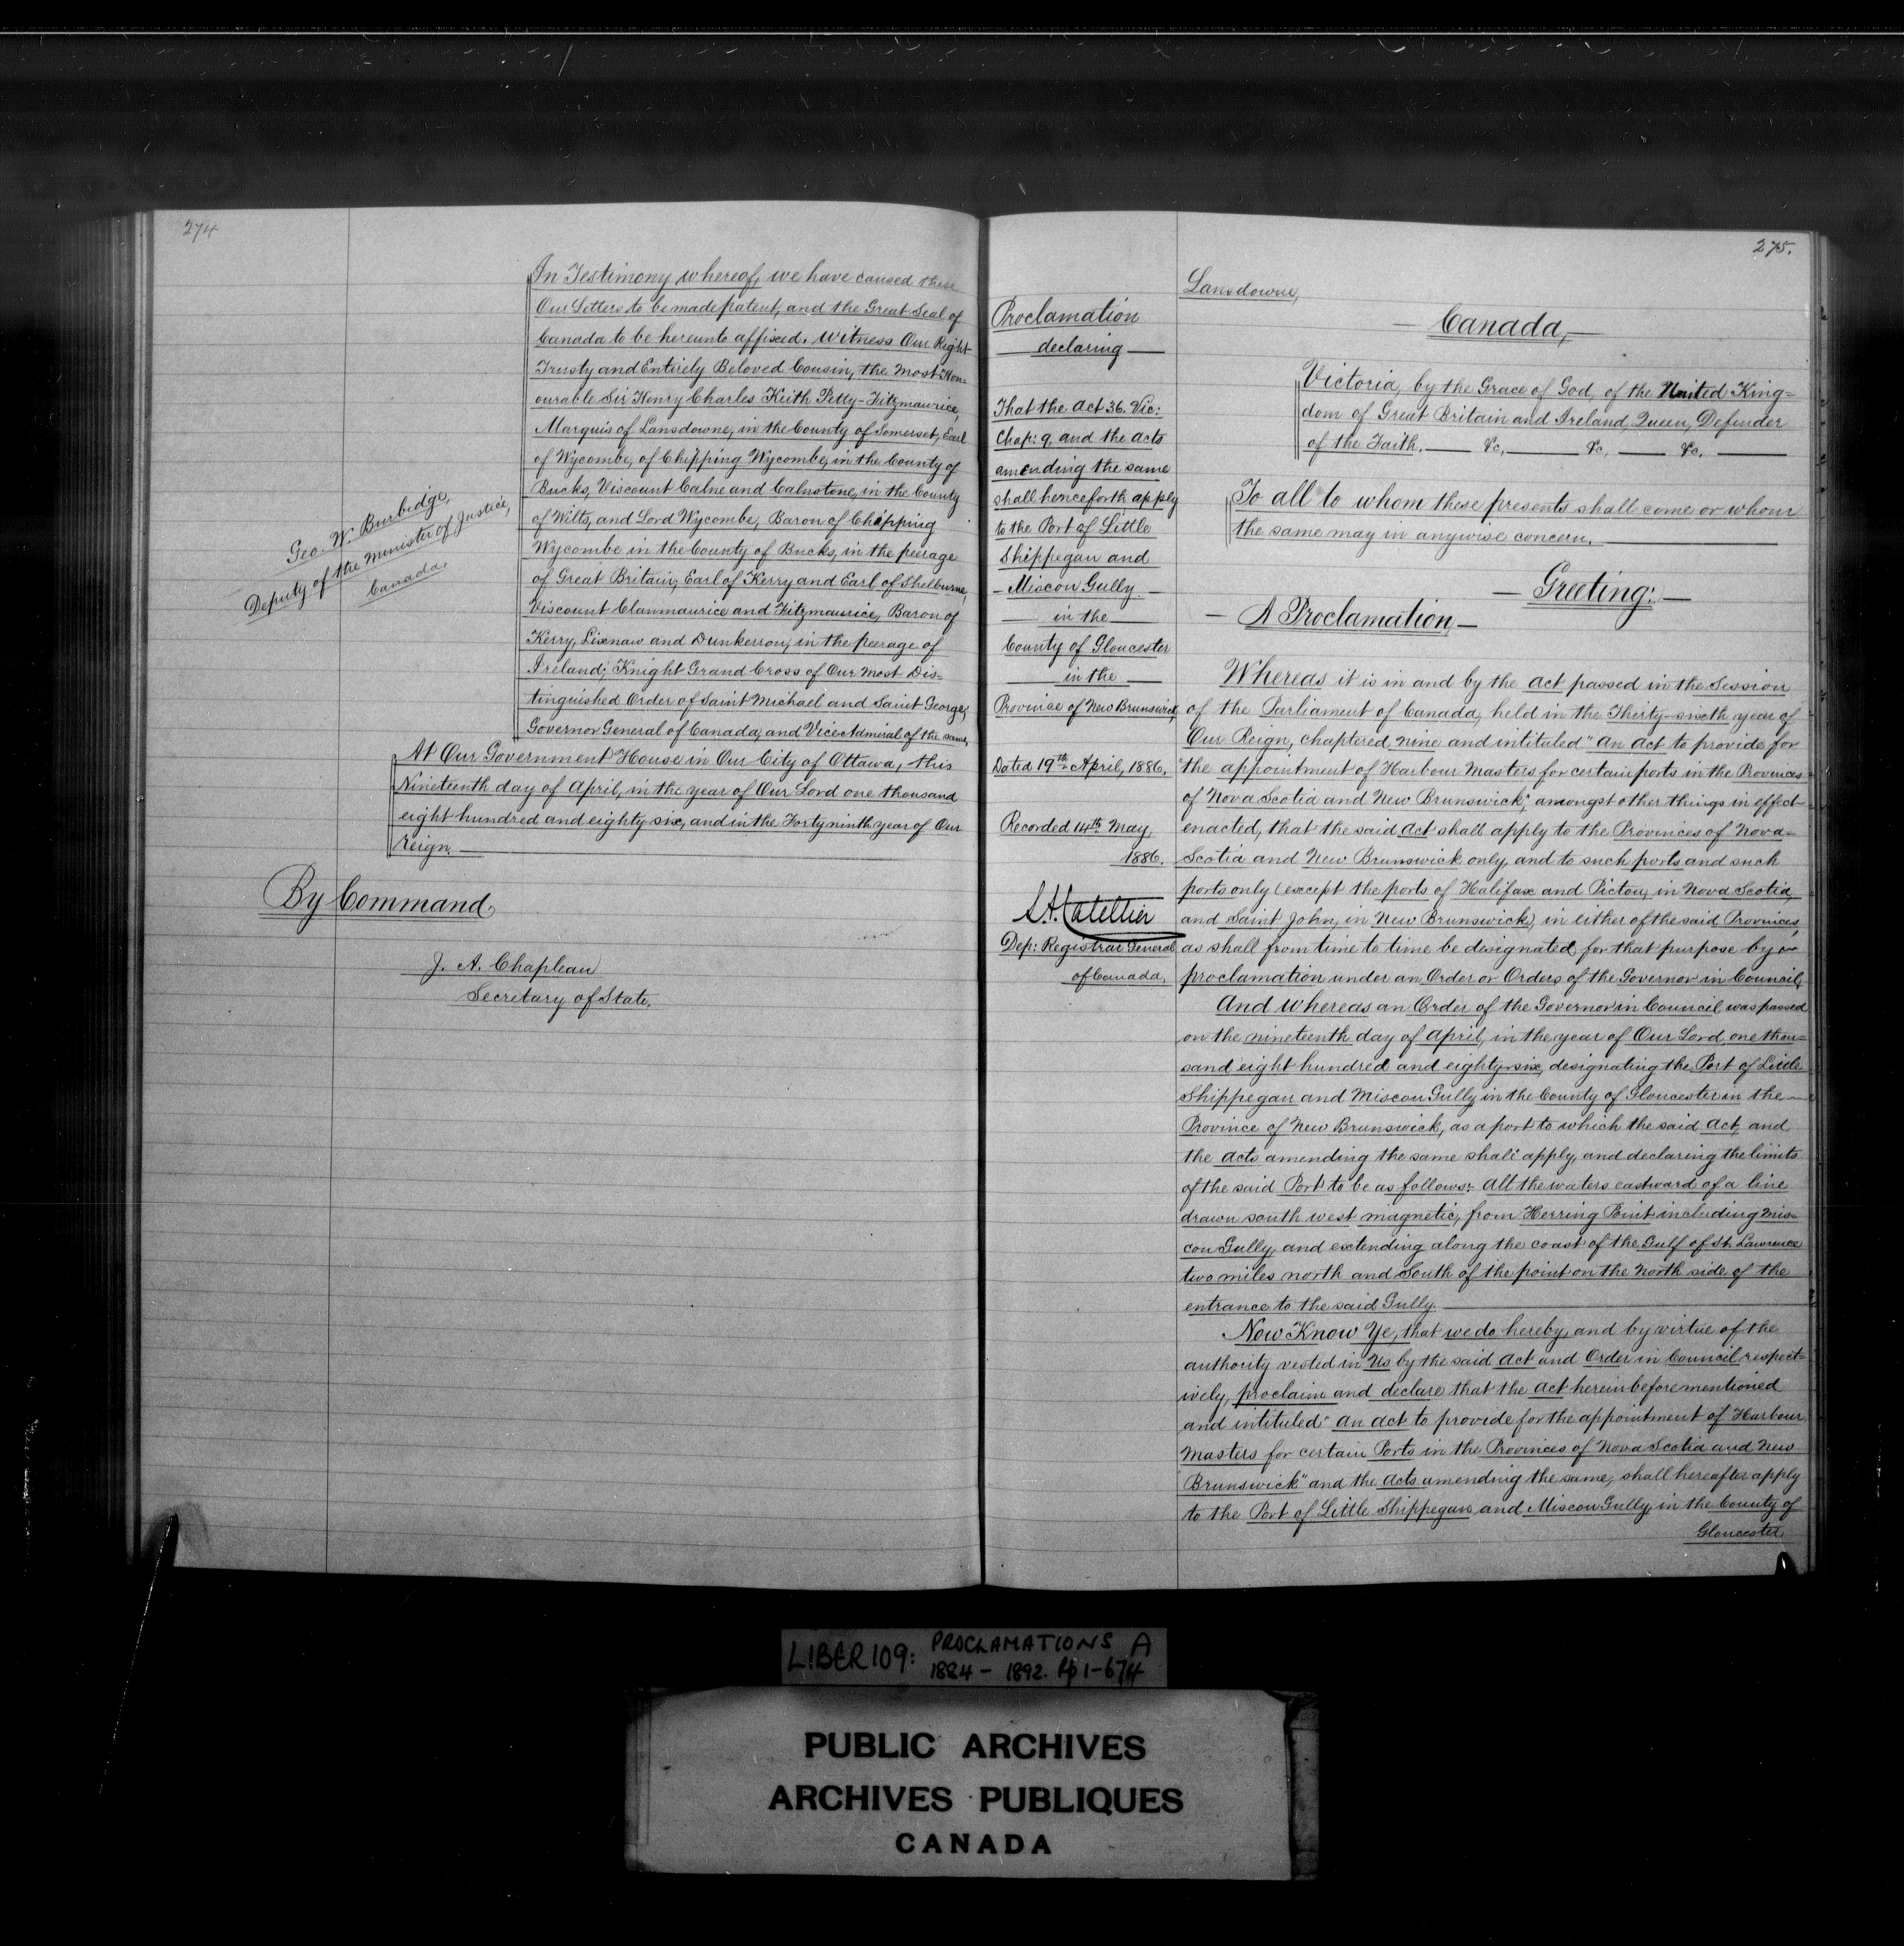 274
In Testimony whereof, we have caused these
Our Letters to be made patent, and the Great Seal of
Canada to be hereunto affixed. Witness Our Right
Trusty and Entirely Beloved Cousin, the Most Hon=
ourable Sir Henry Charles Keith Petty-Fitzmaurice,
Marquis of Lansdowne, in the County of Somerset, Earl
of Wycombe, of Chipping Wycombe, in the County of
Bucks, Viscount Calne and Calnstone, in the County
of Wilts, and Lord Wycombe, Baron of Chipping
Wycombe in the County of Bucks, in the peerage
of Great Britain; Earl of Kerry and Earl of Shelburne,
Viscount Clanmaurice and Fitzmaurice, Baron of
Kerry, Lixnaw and Dunkerron, in the peerage of
Ireland; Knight Grand Cross of Our Most Dis=
tinguished Order of Saint Michael and Saint George,
Governor General of Canada, and Vice Admiral of the same,
Geo. W. Burbidge,
Deputy of the Minister of Justice,
Canada,
At Our Government House in Our City of Ottawa, this
Nineteenth day of April, in the year of Our Lord one thousand
eight hundred and eighty six, and in the Forty ninth year of Our
Reign.
By Command,
J. A. Chapleau
Secretary of State.
275.
Proclamation
declaring
That the Act 36. Vic:
Chap: 9, and the acts
amending the same
shall henceforth apply
to the Port of Little
Shippegan and
Miscou Gully
in the
County of Gloucester
in the
Province of New Brunswick,
Dated 19th April, 1886.
Recorded 14th May,
1886.
Dep: Registrar General
of Canada.
Lansdowne,
Canada,
Victoria, by the Grace of God, of the United King=
dom of Great Britain and Ireland, Queen, Defender
of the Faith. &c, &c, &c.
To all to whom these presents shall come or whom
the same may in anywise concern.
Greeting:
A Proclamation,
Whereas it is in and by the Act passed in the Session
of the Parliament of Canada, held in the Thirty-sixth year of
Our Reign, chaptered nine and intituled "An Act to provide for
"the appointment of Harbour Masters for certain ports in the Provinces
of Nova Scotia and New Brunswick," amongst other things in effect
enacted, that the said Act shall apply to the Provinces of Nova=
Scotia and New Brunswick only, and to such ports and such
ports only (except the ports of Halifax and Pictou, in Nova Scotia,
and Saint John, in New Brunswick) in either of the said Provinces,
as shall from time to time be designated for that purpose by
proclamation under an Order or Orders of the Governor in Council,
And whereas an Order of the Governor in Council was passed
on the nineteenth day of April, in the year of Our Lord one thou=
sand eight hundred and eighty-six, designating the Port of Little
Shippegan and Miscou Gully in the County of Gloucester in the
Province of New Brunswick, as a port to which the said Act, and
the Acts amending the same shall apply, and declaring the limits
of the said Port to be as follows:- All the waters eastward of a line
drawn south west magnetic, from Herring Point including Mis=
cou Gully, and extending along the coast of the Gulf of St. Lawrence
two miles north and South of the point on the North side of the
entrance to the said Gully.
Now Know Ye, that we do hereby, and by virtue of the
authority vested in Us by the said Act and Order in Council respect=
ively, proclaim and declare that the Act hereinbefore mentioned
and intituled "An Act to provide for the appointment of Harbour
Masters for certain Ports in the Provinces of Nova Scotia and New
Brunswick" and the Acts amending the same, shall hereafter apply
to the Port of Little Shippegan and Miscou Gully, in the County of
Gloucester
LIBER 109: PROCLAMATIONS A
1884 - 1892. Pp 1-674
PUBLIC ARCHIVES
ARCHIVES PUBLIQUES
CANADA